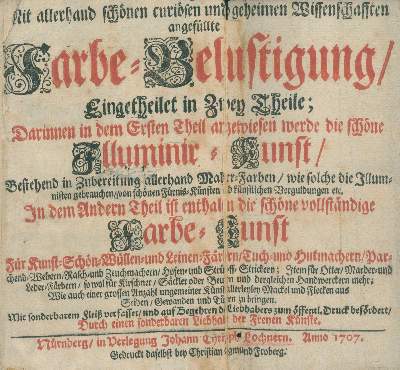 Mit allerhand schönen curiösen und geheimen Wissenschafften
angefüllte
Farbe-Belustigung/
Eingetheilet in Zwey Theile;
Darinnen in dem Ersten Theil angewiesen werde die schöne
Illuminir-Kunst/
Bestehend in Zubereitung allerhand Mahler-Farben/ wie solche die Illumi-
nisten gebrauchen/von schönen Fürnis-Künsten künstlichen Verguldungen etc.
In dem Andern Theil ist enthalten die schöne vollständige
Farbe-Kunst
Für Kunst-Schön-Wüllen-und Leinen-Färber/Tuch-und Hutmachern/Par-
chend-Webern/Rasch und Zeuchmachern/ Hosen-und Strümpff-Strickern; Item für Otter/Marder-und
Leder-Färbern/ so wol für Kirschner/ Säckler oder Beutler und dergleichen Handwerckern mehr;
Wie auch einer grossen Anzahl ungemeiner Künste allerley Mackel und Flecken aus
Seiden/ Gewanden und Tüchern zu bringen.
Mit sonderbarem Fleiß verfasset/ und auf Begehren Liebhabere zum öffentl. Druck befördert/
Durch einen sonderbaren Liebhaber der Freyen Künste.
Nürnberg/ in Verlegung Johann Christoph Lochnern. Anno 1707.
Gedruckt daselbst bey Christian Sigmund Froberg.